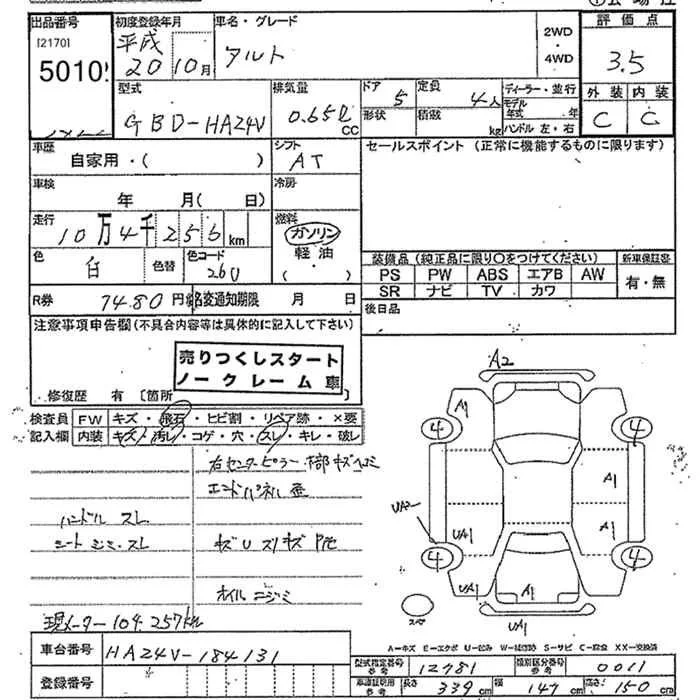 出品番号
[2170]
5010
初度登録年月
平成
20 10月
車名・グレード
アルト
2WD
・
4WD
評価点
3.5
外装 内装
C C
型式
GBD-HA24V
排気量
0.65ℓ
CC
ドア 5
形状
定員 4人
積載 kg
ディーラー・並行
モデル年式 年
ハンドル 左・右
車歴
自家用・( )
シフト
AT
セールスポイント (正常に機能するものに限ります)
車検
年 月( 日)
冷房
走行
10万4千256km
燃料
ガソリン
軽油
( )
色
白
色替
色コード
26U
装備品 (純正品に限り〇をつけてください)
PS PW ABS エアB AW
SR ナビ TV カワ
新車保証書
有・無
R券 7480円
名変通知期限 月 日
後日品
注意事項申告欄(不具合内容等は具体的に記入して下さい)
売りつくしスタート
ノークレーム車
修復歴 有 [箇所
検査員 FW キズ・飛石・ヒビ割・リペア跡・×要
記入欄 内装 キズ・汚レ・コゲ・穴・スレ・キレ・破レ
右センターピラー
エンドパネル
ハンドル スレ
シート シミ・スレ
キズU
オイルニジミ
現メーター104.257km
A2
A1
4
4
A1
UA2
UA1
A1
4
4
UA1
A1
UA1
スペア
UA1
A=キズ E=エクボ U=凹み W=補修跡 S=サビ C=腐食 XX=交換済
車台番号 HA24V-184131
登録番号
型式指定番号 参考 12781
類別区分番号 参考 0011
車庫証明用 参考 長さ 339cm 幅 147cm 高さ 150cm